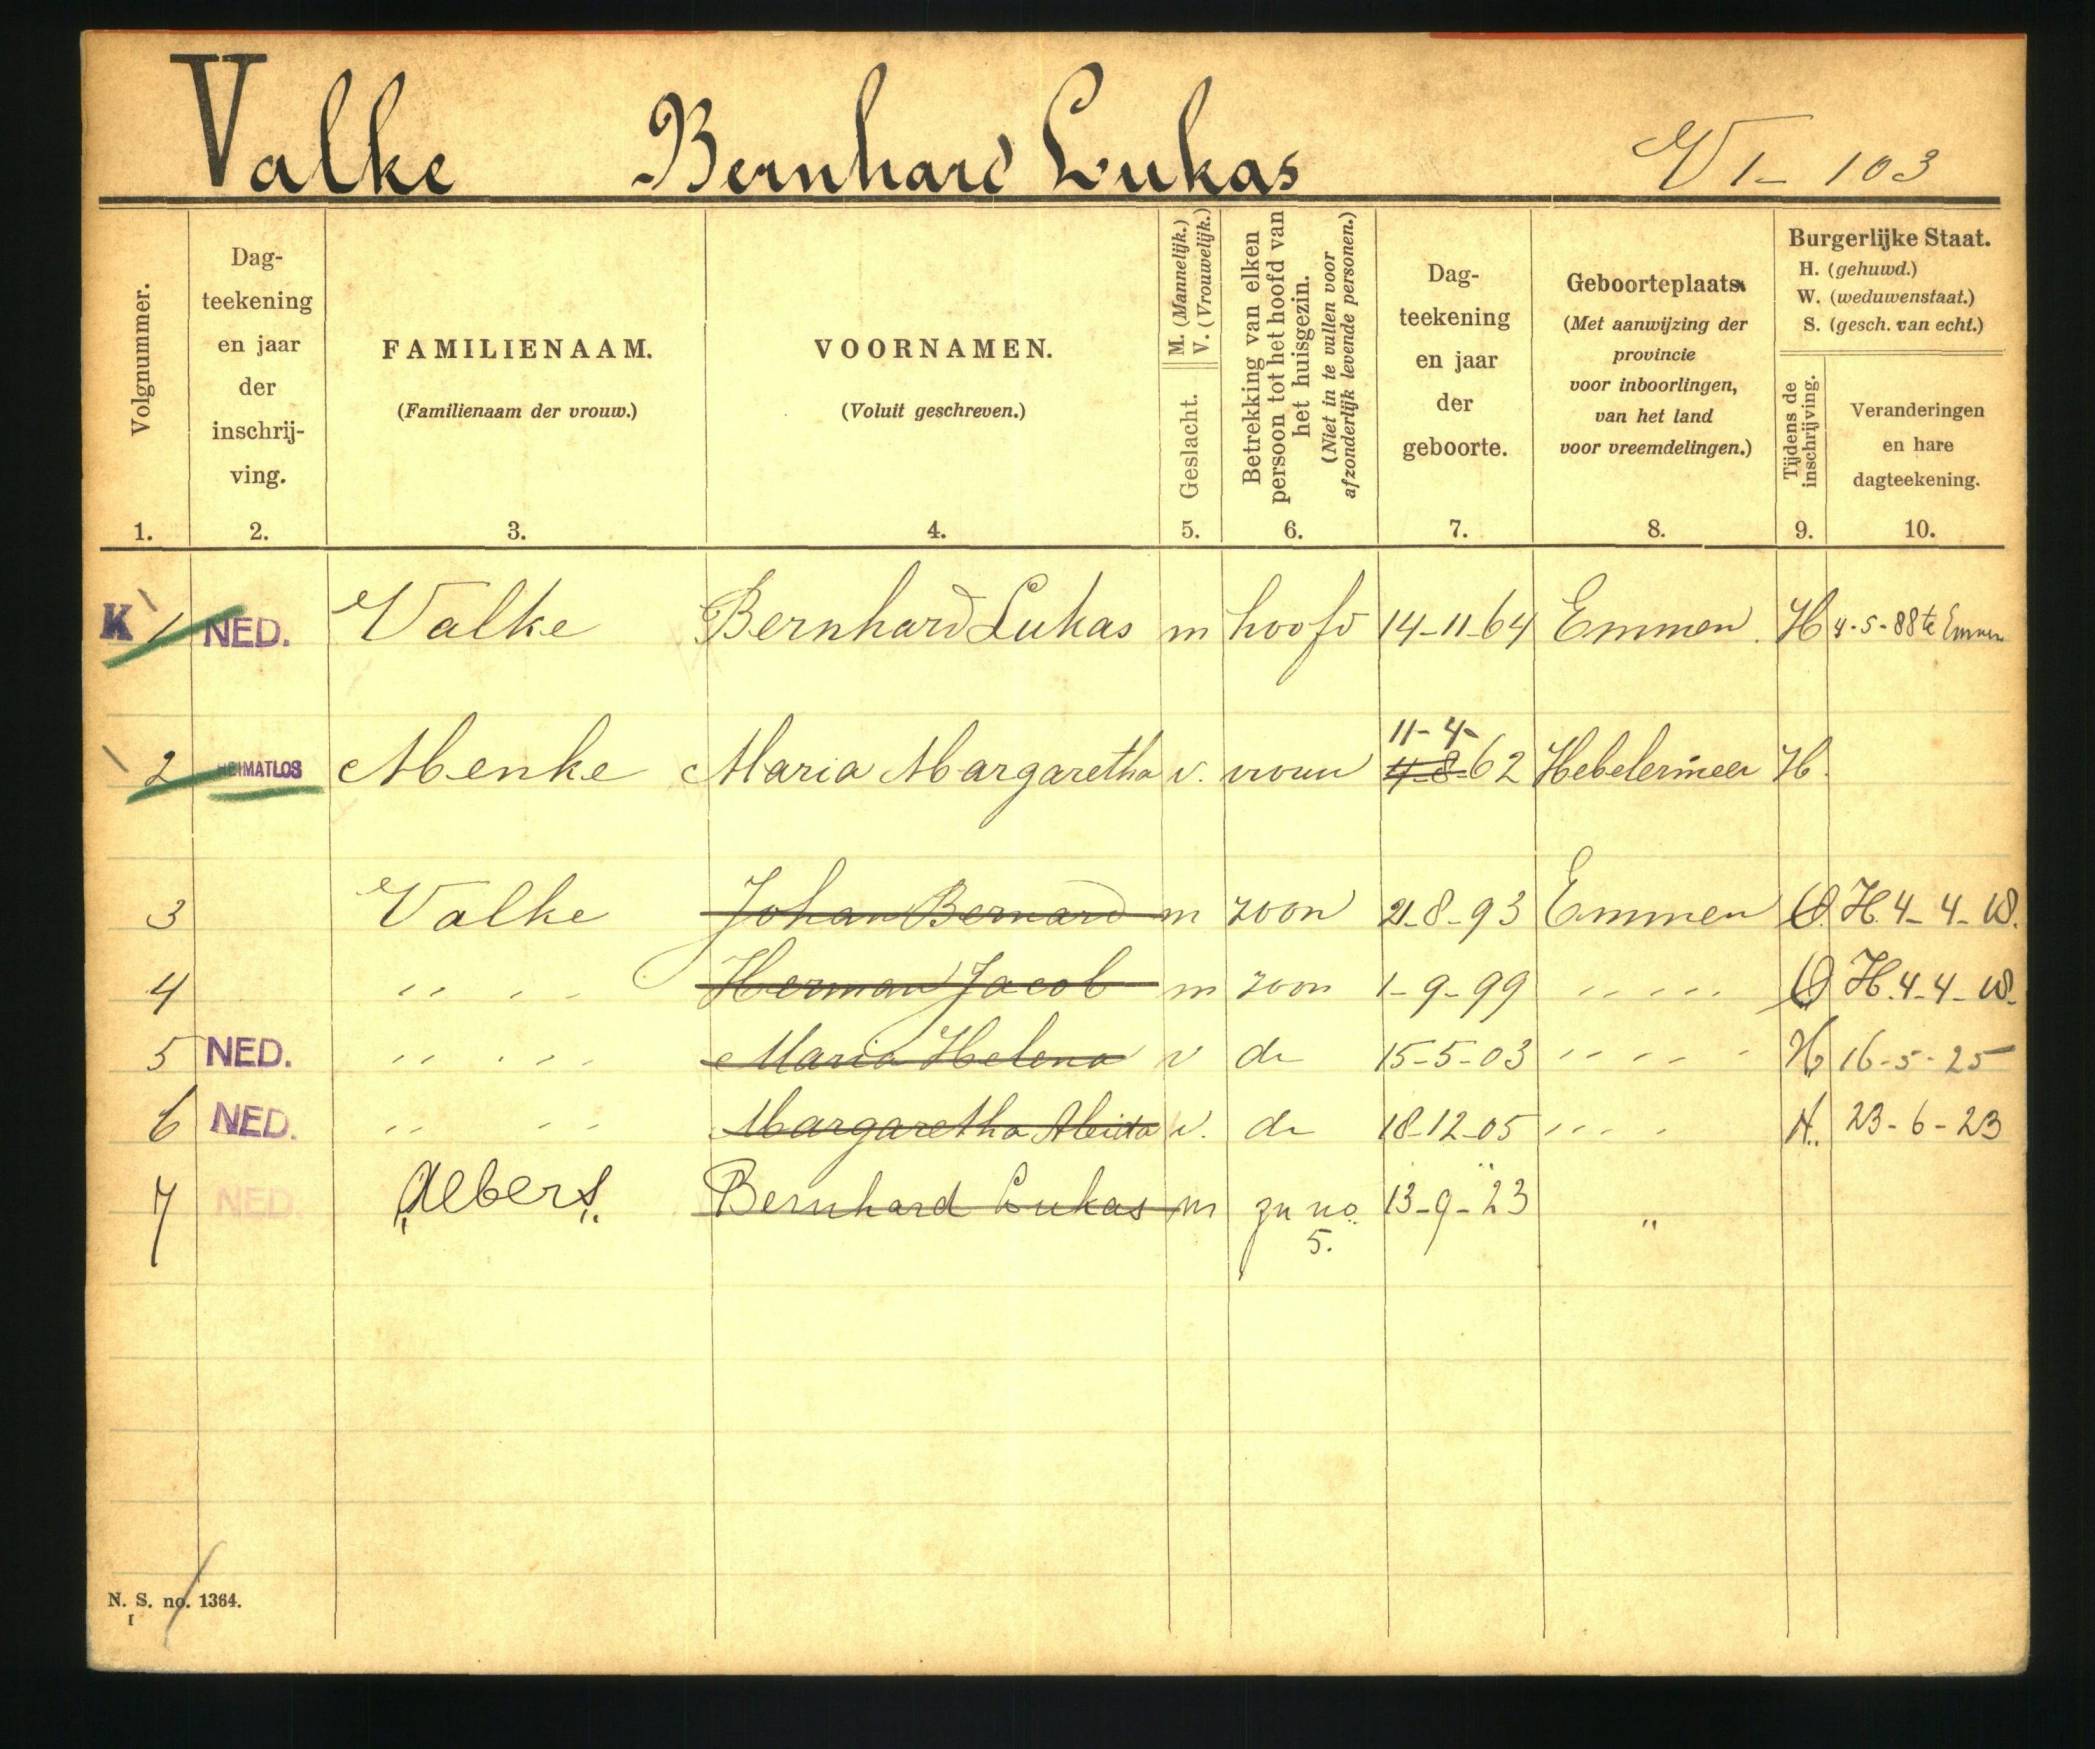 Valke Bernhard Lukas V 1 - 103
Volgnummer.
Dag-
teekening
en jaar
der
inschrij-
ving.
FAMILIENAAM.
(Familienaam der vrouw.)
VOORNAMEN.
(Voluit geschreven.)
M. (Mannelijk.)
V. (Vrouwelijk.)
Geslacht.
Betrekking van elken
persoon tot het hoofd van
het huisgezin.
(Niet in te vullen voor
afzonderlijk levende personen.)
Dag-
teekening
en jaar
der
geboorte.
Geboorteplaats.
(Met aanwijzing der
provincie
voor inboorlingen,
van het land
voor vreemdelingen.)
Burgerlijke Staat.
H. (gehuwd.)
W. (weduwenstaat.)
S. (gesch. van echt.)
Tijdens de
inschrijving.
Veranderingen
en hare
dagteekening.
1. 2. 3. 4. 5. 6. 7. 8. 9. 10.
K 1 NED. Valke Bernhard Lukas m hoofd 14-11-64 Emmen. H 4-5-88 te Emmen
11-4-
2 HEIMATLOS Menke Maria Margaretha v. vrouw 4-8-62 Hebelermeer H.
3 Valke Johan Bernard m zoon 21-8-93 Emmen H. 4-4-
4 " " Herman Jacob m zoon 1-9-99 " " H. 4-4-
5 NED. " " Maria Helena v dr 15-5-03 " " H 16-5-25
6 NED. " " Margaretha Aleida v. dr 18-12-05 " " H. 23-6-23
7 NED. Albers Bernhard Lukas m zn no 13-9-23 "
5.
N. S. no. 1364.
I